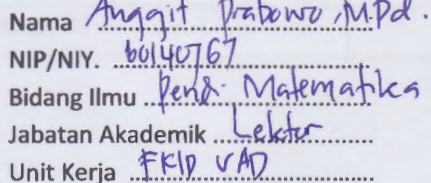 Nama Anggit Prabowo, M.Pd.
NIP/NIY. 60140767
Bidang Ilmu Pend. Matematika
Jabatan Akademik Lektor
Unit Kerja FKIP UAD